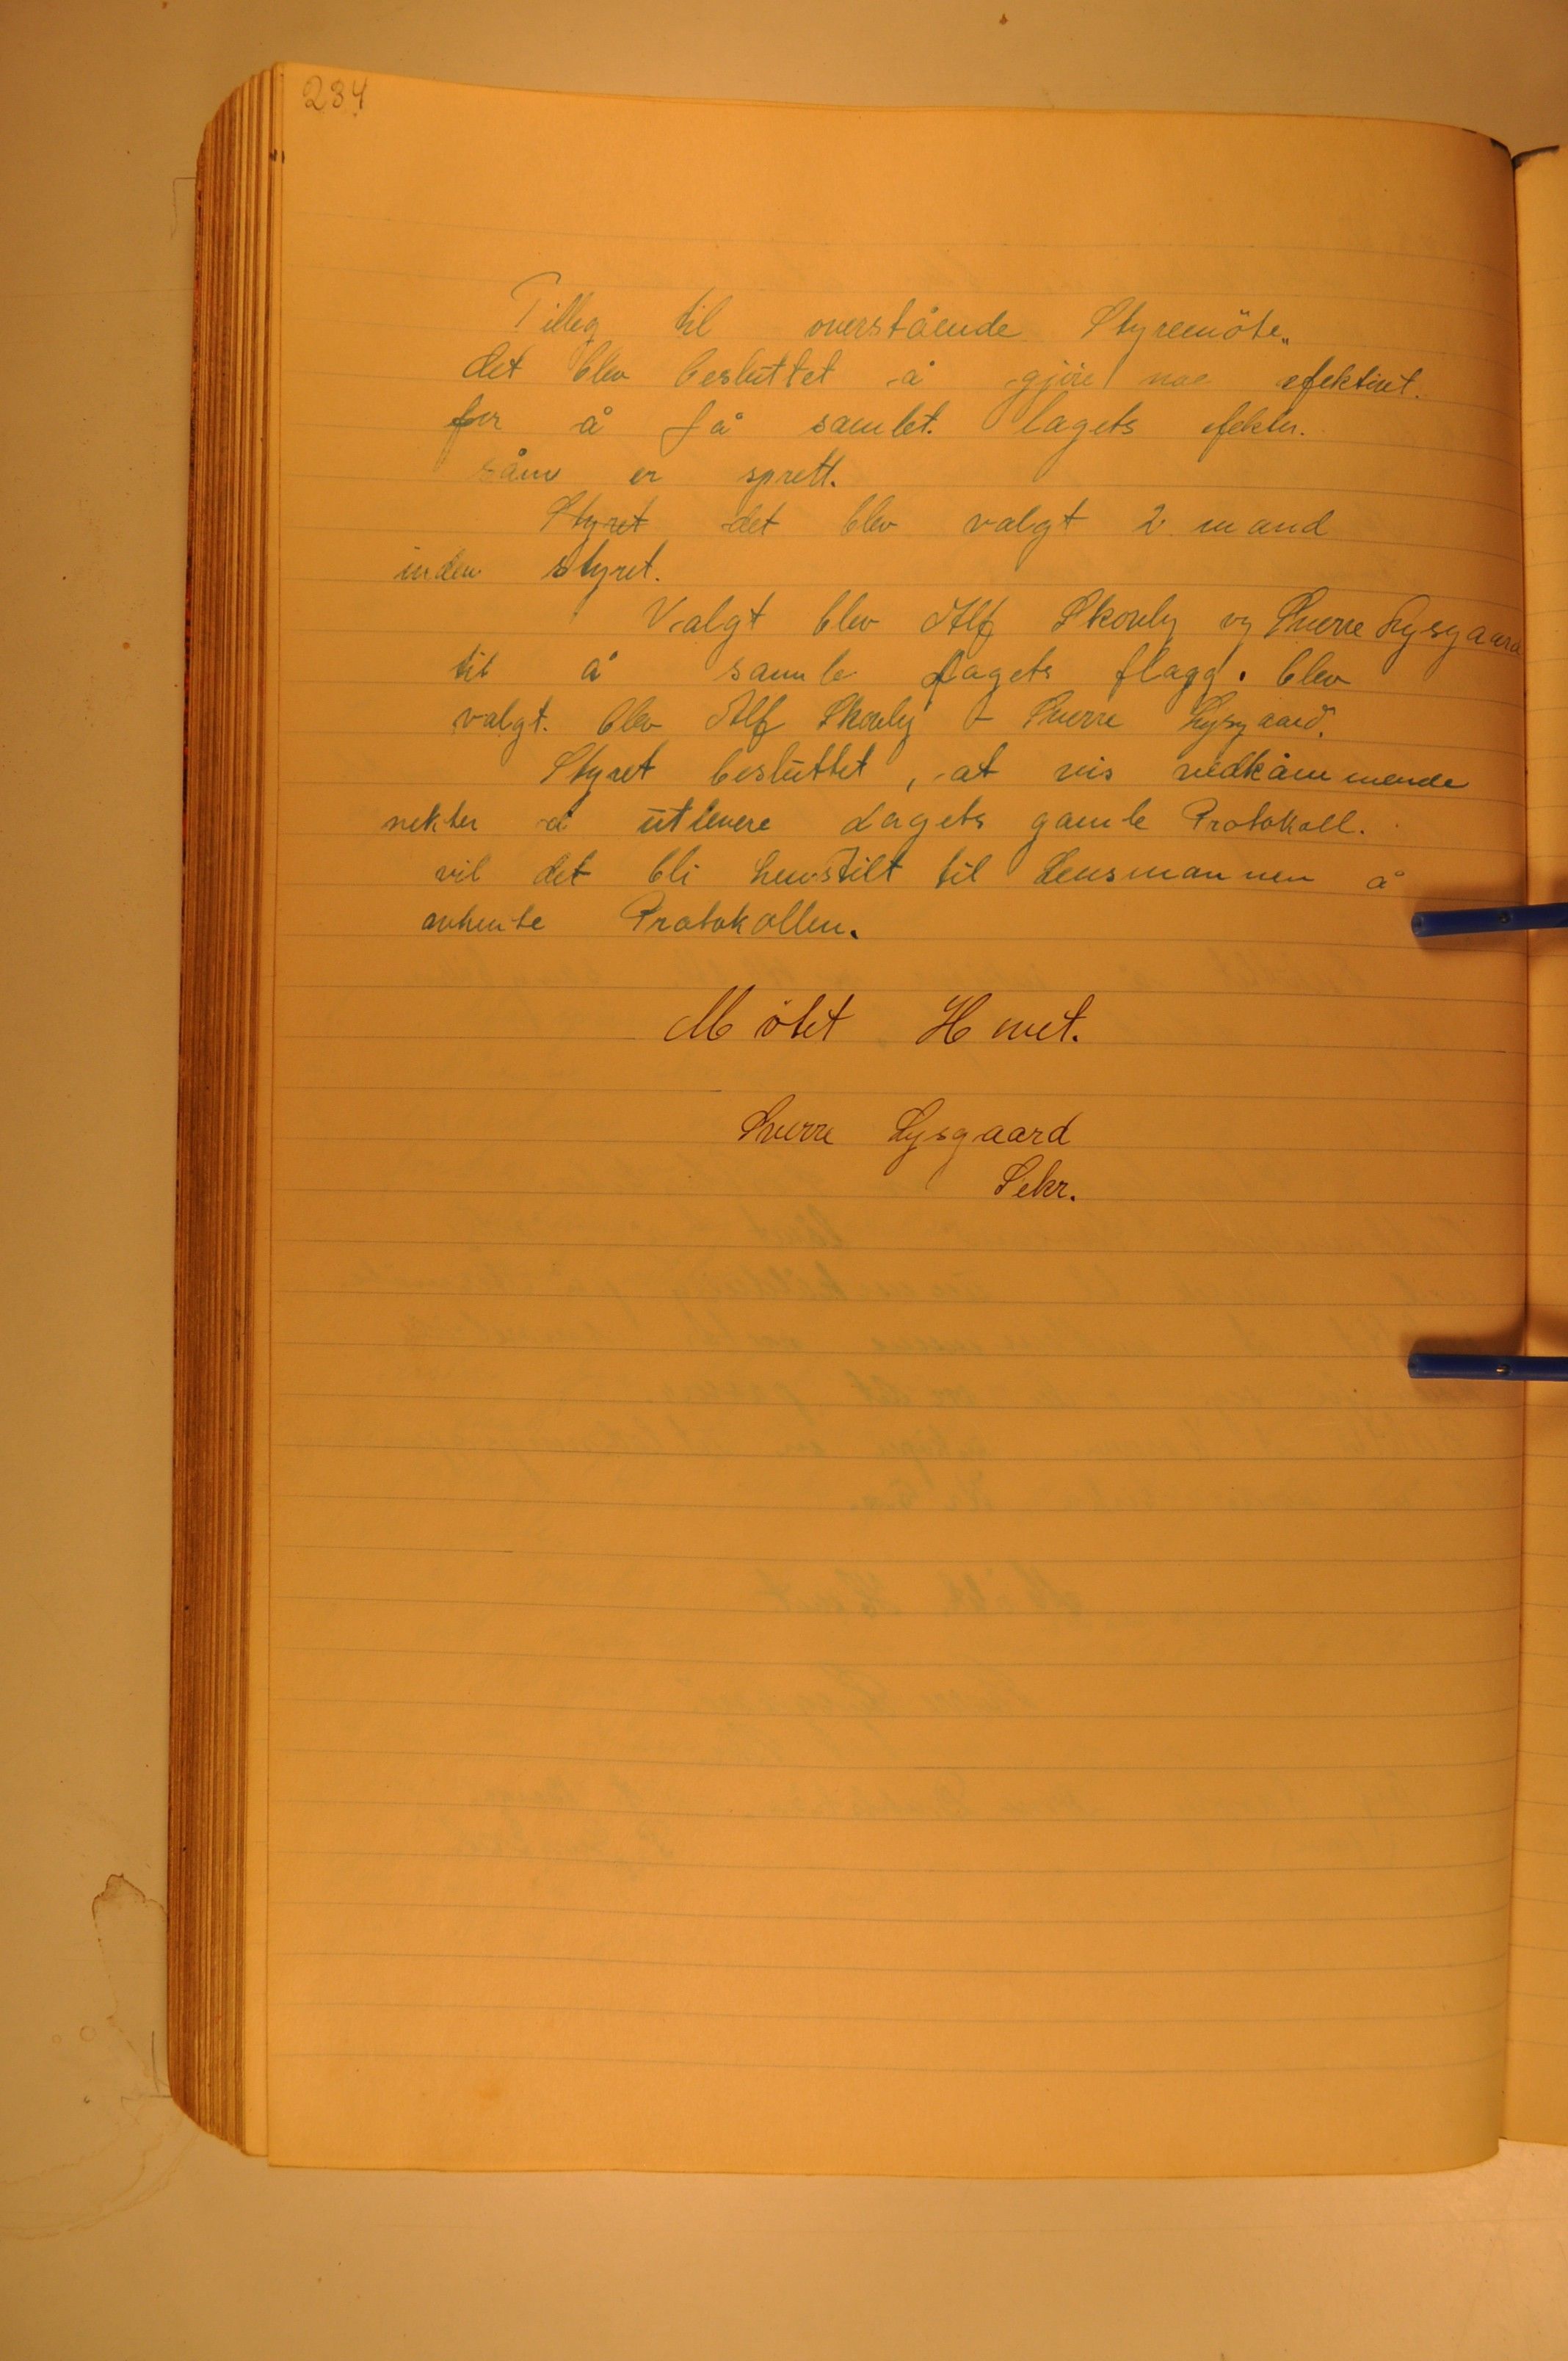 234
Tilleg til overstående Styremöte„
det blev besluttet å gjöre noe efektivt.
for å få samlet. lagets efekter.
såm er sprett.
Styret det blev valgt 2 mand
inden styret.
Valgt blev Alf Skovly og Sverre Lysgaard
til å samle lagets flagg. blev
valgt. blev Alf Skovly - Sverre Lysgaard.
Styret besluttet, at vis vedkåmmende
nekter å utlevere Lagets gamle Protokoll.
vil det bli henstilt til Lensmannen å
avhente Protokollen.
Mötet Hevet.
Sverre Lysgaard
Sekr.